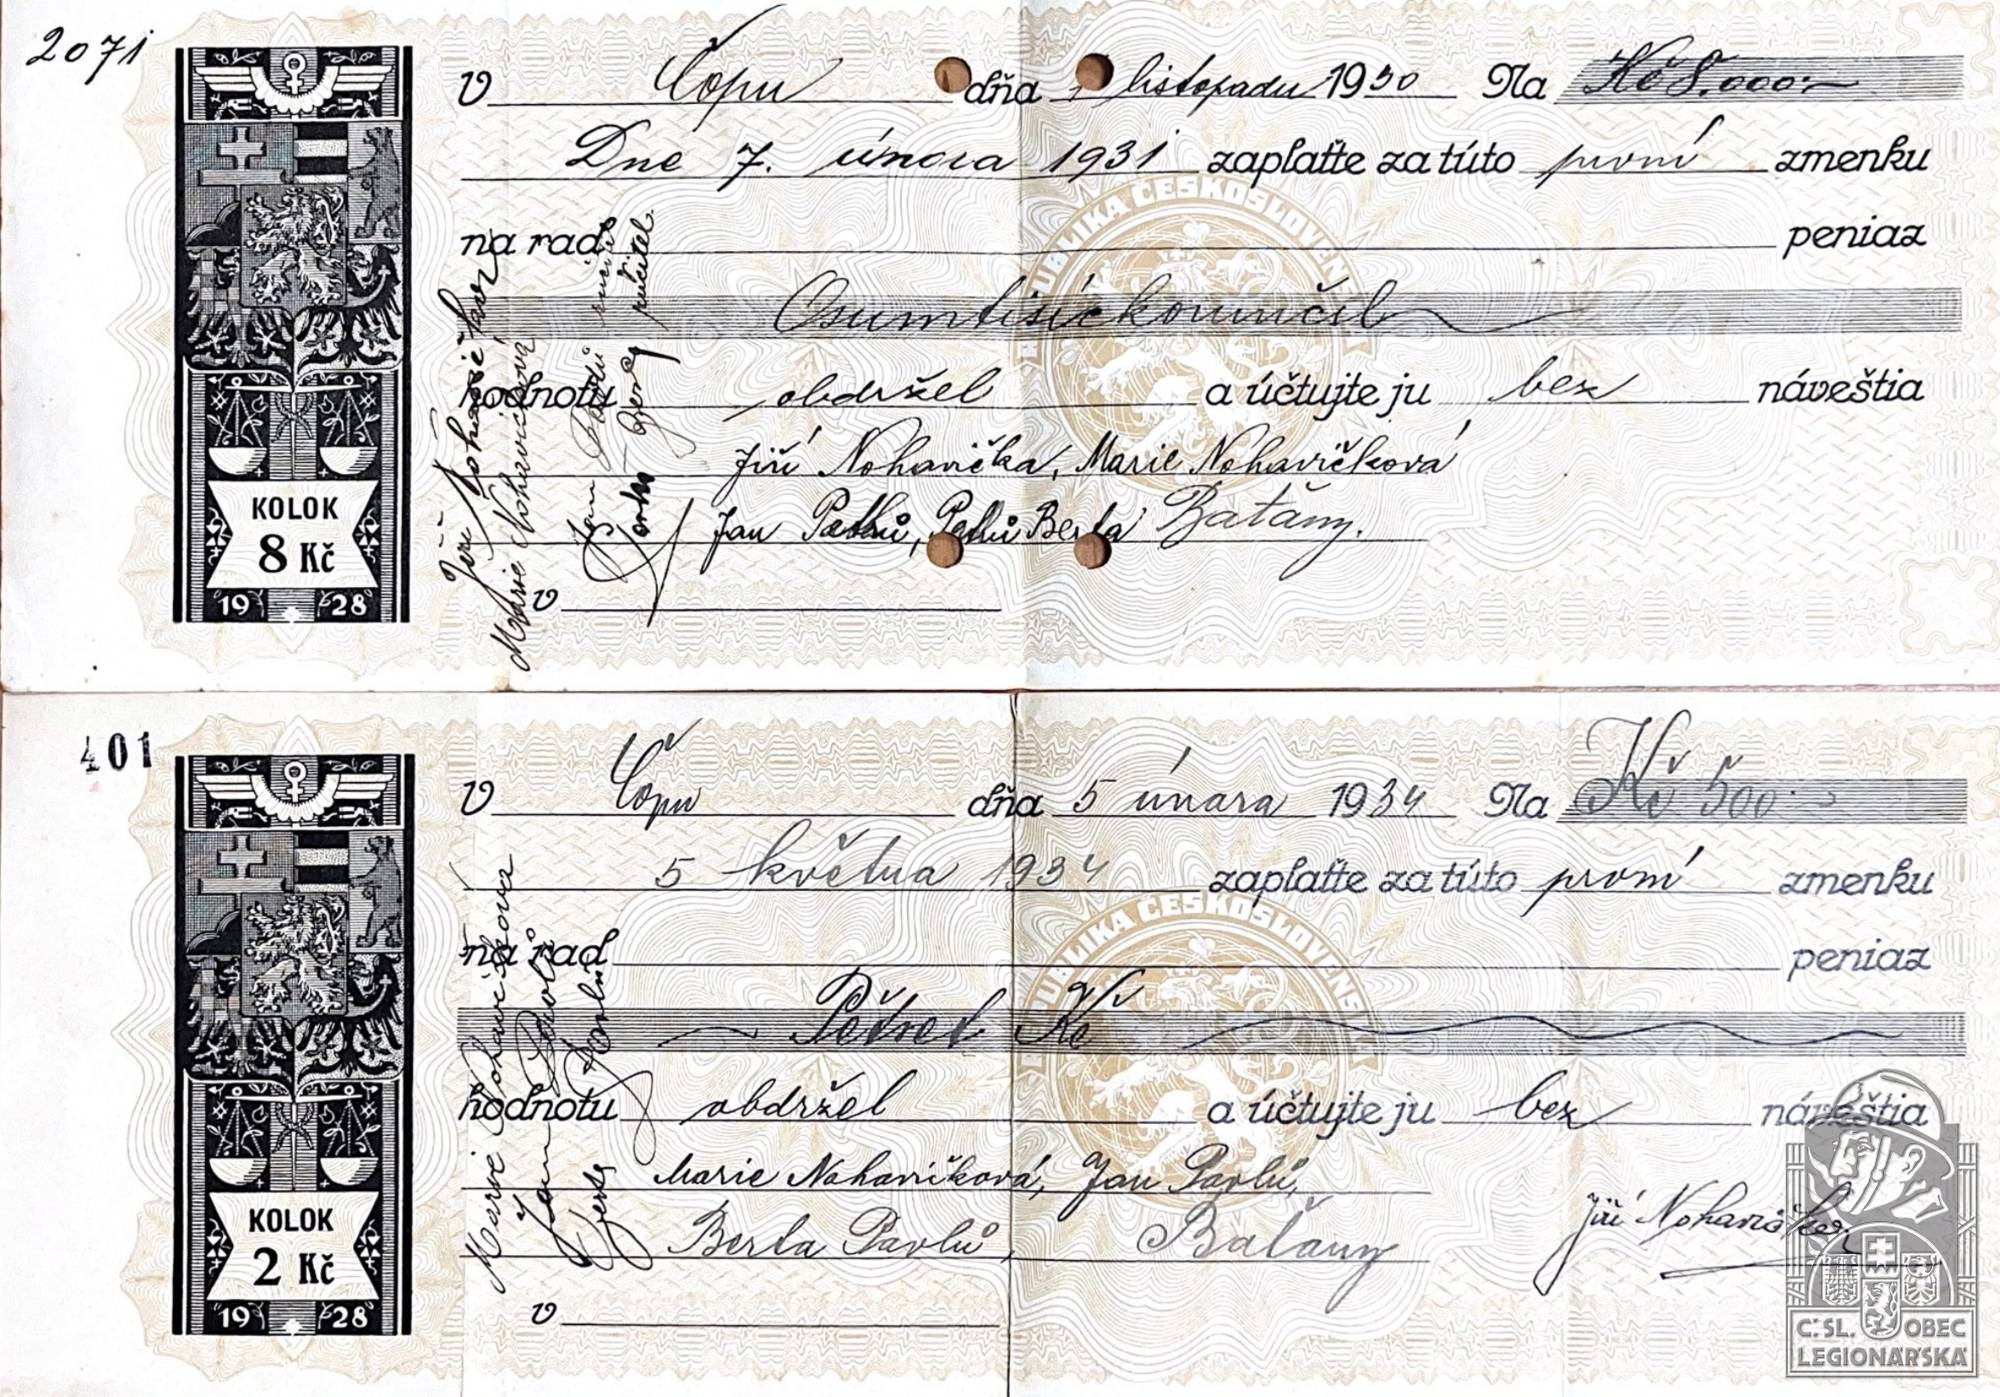 2071
V Čopu dňa listopadu 1930 Na Kč 8.000.-
Dne 7. února 1931 zaplaťte za túto první zmenku
na rad peniaz
Osumtisíckorunčsl
hodnotu obdržel a účtujte ju bez náveštia
Jiří Nohavička, Marie Nohavičková
Jan Pavlů, Pavlů Berta Baťány.
v
Jiří Nohavička
Marie Nohavičková
Jan Pavlů
KOLOK
8 Kč
1928
REPUBLIKA ČESKOSLOVENSKÁ
401
V Čopu dňa 5 února 1934 Na Kč 500.-
5 května 1934 zaplaťte za túto první zmenku
na rad peniaz
Pětset Kč
hodnotu obdržel a účtujte ju bez náveštia
Marie Nohavičková, Jan Pavlů,
Berta Pavlů, Baťány
Jiří Nohavička
v
Marie Nohavičková
Jan Pavlů
KOLOK
2 Kč
1928
REPUBLIKA ČESKOSLOVENSKÁ
Č.SL. OBEC
LEGIONÁŘSKÁ